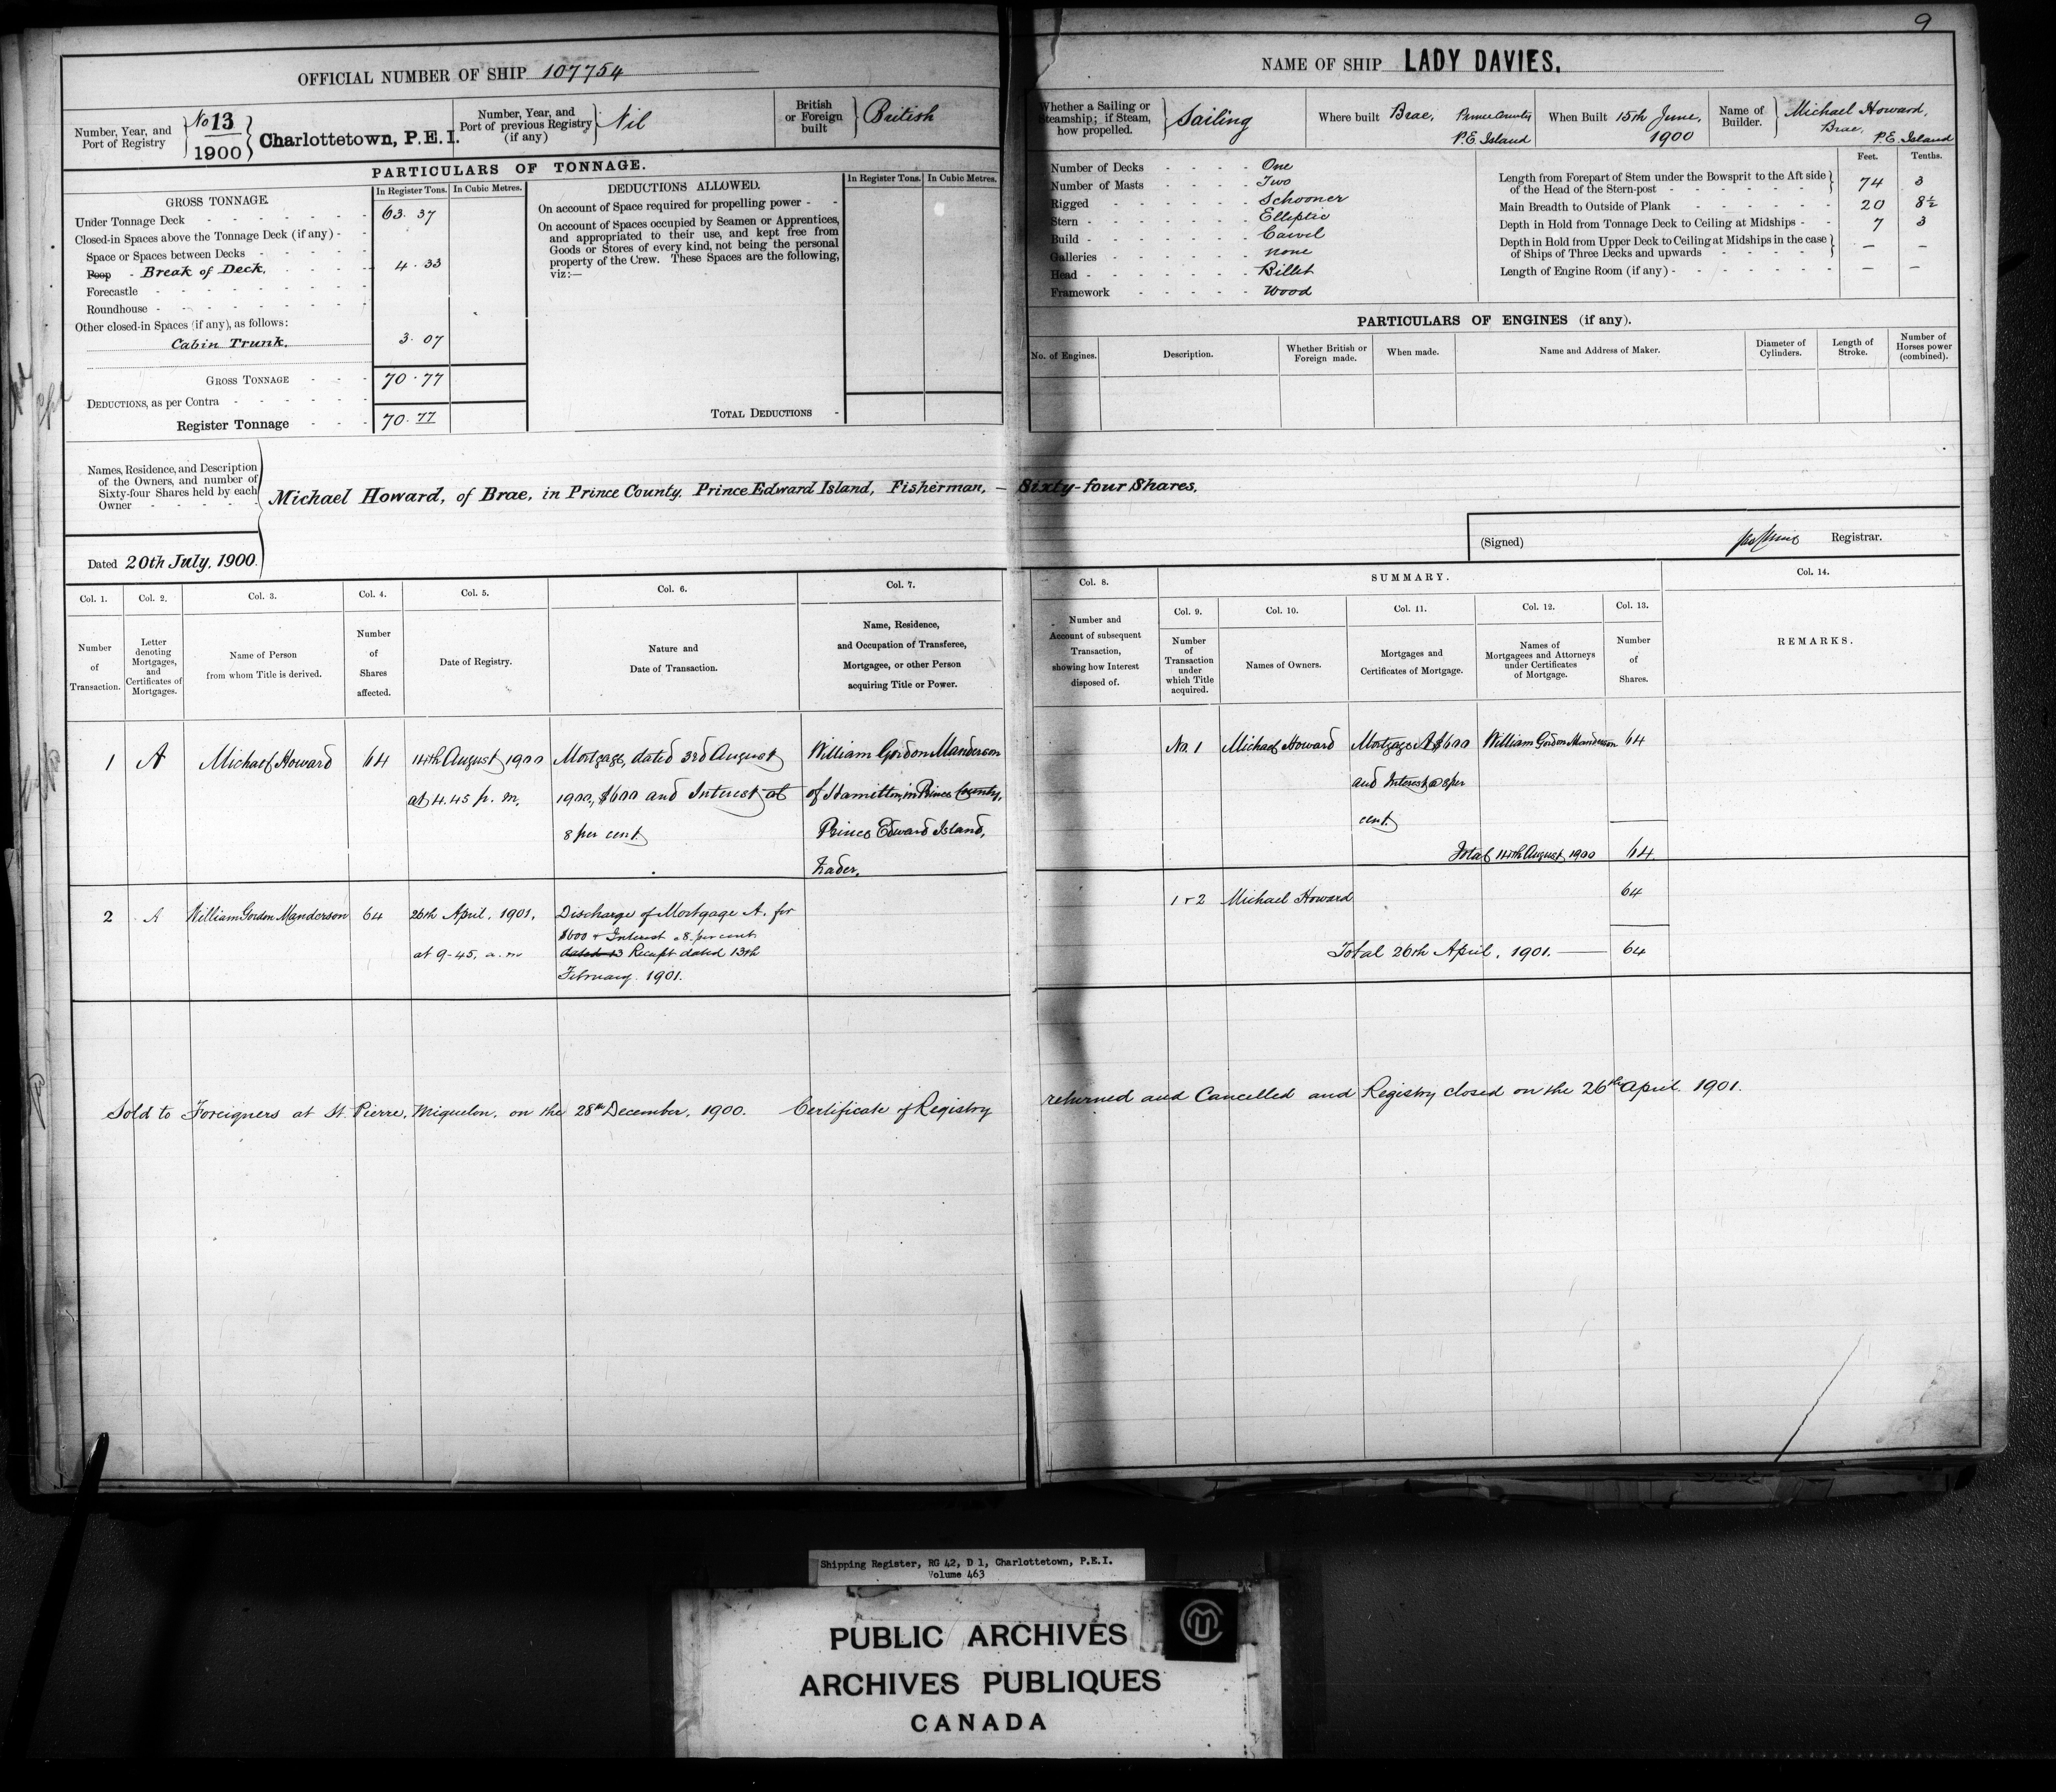 9
OFFICIAL NUMBER OF SHIP 107754
Number, Year, and Port of Registry
No 13
1900
Charlottetown, P.E.I.
Number, Year, and Port of previous Registry (if any)
Nil
British or Foreign built
British
PARTICULARS OF TONNAGE.
GROSS TONNAGE.
In Register Tons.
In Cubic Metres.
Under Tonnage Deck 63.37
Closed-in Spaces above the Tonnage Deck (if any)
Space or Spaces between Decks
Poop - Break of Deck. 4.33
Forecastle
Roundhouse
Other closed-in Spaces (if any), as follows:
Cabin Trunk. 3.07
GROSS TONNAGE 70.77
DEDUCTIONS, as per Contra
Register Tonnage 70.77
DEDUCTIONS ALLOWED.
In Register Tons.
In Cubic Metres.
On account of Space required for propelling power
On account of Spaces occupied by Seamen or Apprentices,
and appropriated to their use, and kept free from
Goods or Stores of every kind, not being the personal
property of the Crew. These Spaces are the following,
viz:—
TOTAL DEDUCTIONS
NAME OF SHIP LADY DAVIES.
Whether a Sailing or Steamship; if Steam, how propelled.
Sailing
Where built Brae, Prince County P.E. Island
When Built 15th June, 1900
Name of Builder. Michael Howard, Brae, P.E. Island
Number of Decks One
Number of Masts Two
Rigged Schooner
Stern Elliptic
Build Carvel
Galleries None
Head Billet
Framework Wood
Feet. Tenths.
Length from Forepart of Stem under the Bowsprit to the Aft side
of the Head of the Stern-post 74 3
Main Breadth to Outside of Plank 20 8½
Depth in Hold from Tonnage Deck to Ceiling at Midships 7 3
Depth in Hold from Upper Deck to Ceiling at Midships in the case
of Ships of Three Decks and upwards — —
Length of Engine Room (if any) — —
PARTICULARS OF ENGINES (if any).
No. of Engines.
Description.
Whether British or Foreign made.
When made.
Name and Address of Maker.
Diameter of Cylinders.
Length of Stroke.
Number of Horses power (combined).
Names, Residence, and Description
of the Owners, and number of
Sixty-four Shares held by each
Owner
Michael Howard, of Brae, in Prince County, Prince Edward Island, Fisherman, — Sixty-four Shares.
Dated 20th July, 1900.
(Signed) Registrar.
Col. 1. Number of Transaction.
Col. 2. Letter denoting Mortgages, and Certificates of Mortgages.
Col. 3. Name of Person from whom Title is derived.
Col. 4. Number of Shares affected.
Col. 5. Date of Registry.
Col. 6. Nature and Date of Transaction.
Col. 7. Name, Residence, and Occupation of Transferee, Mortgagee, or other Person acquiring Title or Power.
Col. 8. Number and Account of subsequent Transaction, showing how Interest disposed of.
SUMMARY.
Col. 9. Number of Transaction under which Title acquired.
Col. 10. Names of Owners.
Col. 11. Mortgages and Certificates of Mortgage.
Col. 12. Names of Mortgagees and Attorneys under Certificates of Mortgage.
Col. 13. Number of Shares.
Col. 14. REMARKS.
1 A Michael Howard 64
14th August 1900
at 4.45 p.m.
Mortgage, dated 3rd August
1900, $600 and Interest at
8 per cent
William Gordon Manderson
of Hamilton, in Prince County,
Prince Edward Island,
Trader.
No. 1 Michael Howard
Mortgage A $600
and Interest @ 8 per
cent
William Gordon Manderson 64
Total 14th August 1900 64
2 A William Gordon Manderson 64
26th April, 1901.
at 9-45. a.m
Discharge of Mortgage A. for
$600 + Interest 8. per cent
dated 13 Receipt dated 13th
February. 1901.
1 + 2 Michael Howard 64
Total 26th April, 1901. — 64
Sold to Foreigners at St. Pierre, Miquelon, on the 28th December, 1900. Certificate of Registry returned and Cancelled and Registry closed on the 26th April. 1901.
Shipping Register, RG 42, D 1, Charlottetown, P.E.I.
Volume 463
PUBLIC ARCHIVES
ARCHIVES PUBLIQUES
CANADA